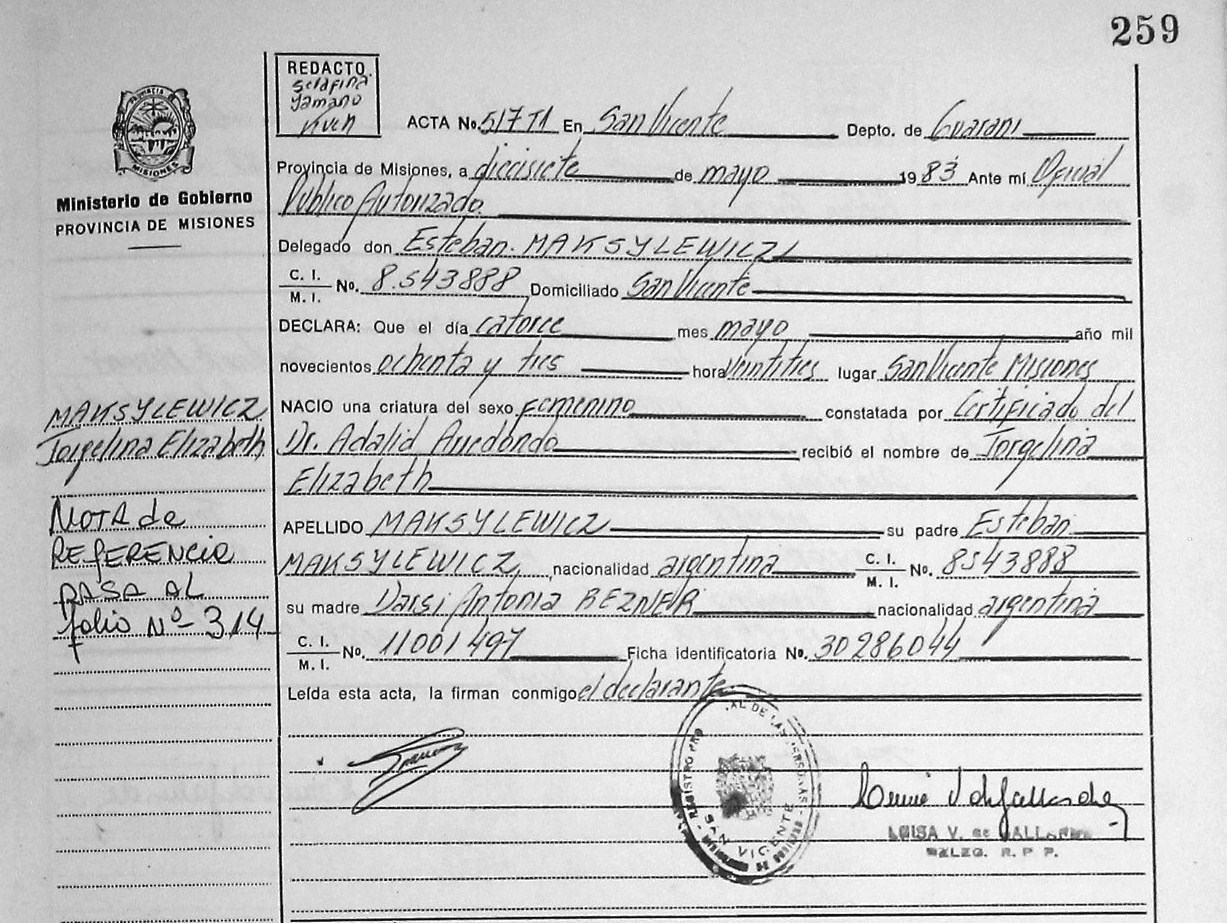 259
REDACTO
Serafina
Yamano
Kuen
ACTA No. 517 T1 En San Vicente Depto. de Guaraní
Provincia de Misiones, a diecisiete de mayo 1983 Ante mi Oficial
Público Autorizado.
Delegado don Esteban. MAKSYLEWICZ
C. I.
M. I.
No. 8.543888 Domiciliado San Vicente
DECLARA: Que el día catorce mes mayo año mil
novecientos ochenta y tres hora veintitres lugar San Vicente Misiones
NACIO una criatura del sexo femenino constatada por Certificado del
Dr. Adalid Arredondo recibió el nombre de Jorgelina
Elizabeth
APELLIDO MAKSYLEWICZ su padre Esteban
MAKSYLEWICZ, nacionalidad argentina C. I.
M. I. No. 8543888
su madre Darsi Antonia REZNER nacionalidad argentina
C. I.
M. I.
No. 11001497 Ficha identificatoria No. 30286044
Leída esta acta, la firman conmigo el declarante
PROVINCIA DE
MISIONES
Ministerio de Gobierno
PROVINCIA DE MISIONES
MAKSYLEWICZ
Jorgelina Elizabeth
NOTA de
REFERENCIA
PASA AL
folio Nº 314
REGISTRO PRO
AL DE LAS PERSONAS
SAN VICENTE
LUISA V. de
DELEG. R. P. P.